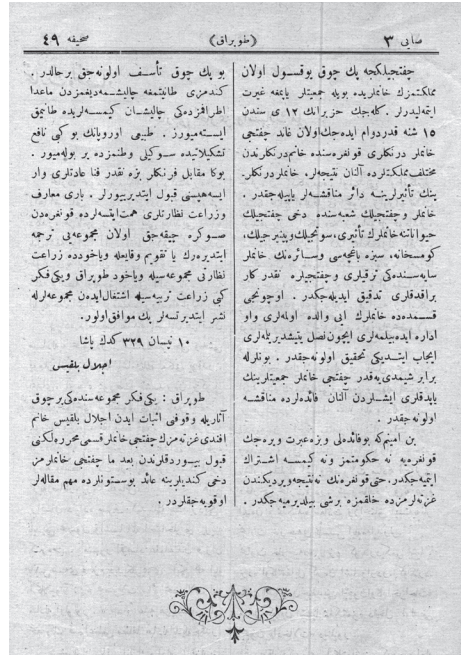 صایی ٣ (طوپراق) صحیفه ٤٩
چفتجیلکجه پك چوق یوقسول اولان
مملکتمزك خانملریده بویله جمعیتلر یاپمغه غیرت
ایتملیدرلر. کله‌جك حزیرانك ١٢ ی سندن
١٥ شنه قدر دوام ایده‌جك اولان غاند چفتجی
خانملر درنکلری قونفره‌سنده خانم درنکلرندن
مختلف مملکتلرده آلنان نتیجه‌لر. خانملر درنکلر-
ینك تأثیرلرینه دائر مناقشه‌لر یاپیله‌جقدر.
خانملر وچفتجیلك شعبه‌سنده دخی چفتجیلك
حیواناتنه خانملرك تأثیری، سوتجیلك وپینیرجیلك،
کومسخانه، سبزه باغچه‌سی وسائره‌نك خانملر
سایه‌سنده‌کی ترقیلری وچفتجیلره نقدر کار
براقدقلری تدقیق ایدیله‌جکدر. اوچونجی
قسمده‌ده خانملرك ایی والده اولمه‌لری واو
اداره ایده‌بیلمه‌لری ایچون نصل یتیشدیریله‌لری
ایجاب ایتدیکی تحقیق اولونه‌جقدر. بونلرله
برابر شیمدی‌یه‌قدر چفتجی خانملر جمعیتلرینك
یاپدقلری ایشلردن آلنان فائده‌لرده مناقشه
اولونه‌جقدر.
بن امینم‌که بوفائده‌لی وبزه عبرت ویره‌جك
قونفره‌یه نه حکومتمز ونه کیمسه اشتراك
ایتمیه‌جکدر. حتی قونفره‌نك نه نتیجه ویردیکندن
غزته‌لرمزده خلقمزه برشی بیلدیرمیه‌جکدر.
بو پك چوق تأسف اولونه‌جق برحالدر.
کندمزی طانیتمغه چالیشمه‌دیغمزدن ماعدا
اطرافمزده‌کی چالیشان کیمسه‌لریده طانیمق
ایسته‌میورز. طبیعی اوروپانك بو کبی نافع
تشکیلاتیده سوکیلی وطنمزده یر بوله‌میور.
بوکا مقابل فرنکلر بزه نقدر فنا عادتلری وار
ایسه‌هپسنی قبول ایتدیرییورلر. باری معارف
وزراعت نظارتلری همت‌ایتسه‌لرده قونفره‌دن
صوکره چیقه‌جق اولان مجموعه‌یی ترجمه
ایتدیره‌رك یا تقویم وقایعله ویاخودده زراعت
نظارتی مجموعه‌سیله ویاخود طوپراق ویکی‌فکر
کبی زراعت تربیه‌سیله اشتغال‌ایدن مجموعه‌لرله
نشر ایتدیرتسه‌لر پك موافق‌اولور.
١٠ نیسان ٣٢٩ کدك پاشا
اجلال بلقیس
طوپراق : یکی‌فکر مجموعه‌سنده‌کی برچوق
آثاریله وقوفی اثبات ایدن اجلال بلقیس خانم
افندی غزته‌مزك چفتجی خانملر قسمی محررلکنی
قبول بیوردقلرندن بعد ما چفتجی خانملرمز
دخی کندیلرینه عائد بوستونلرده مهم مقاله‌لر
اوقویه‌جقلردر.